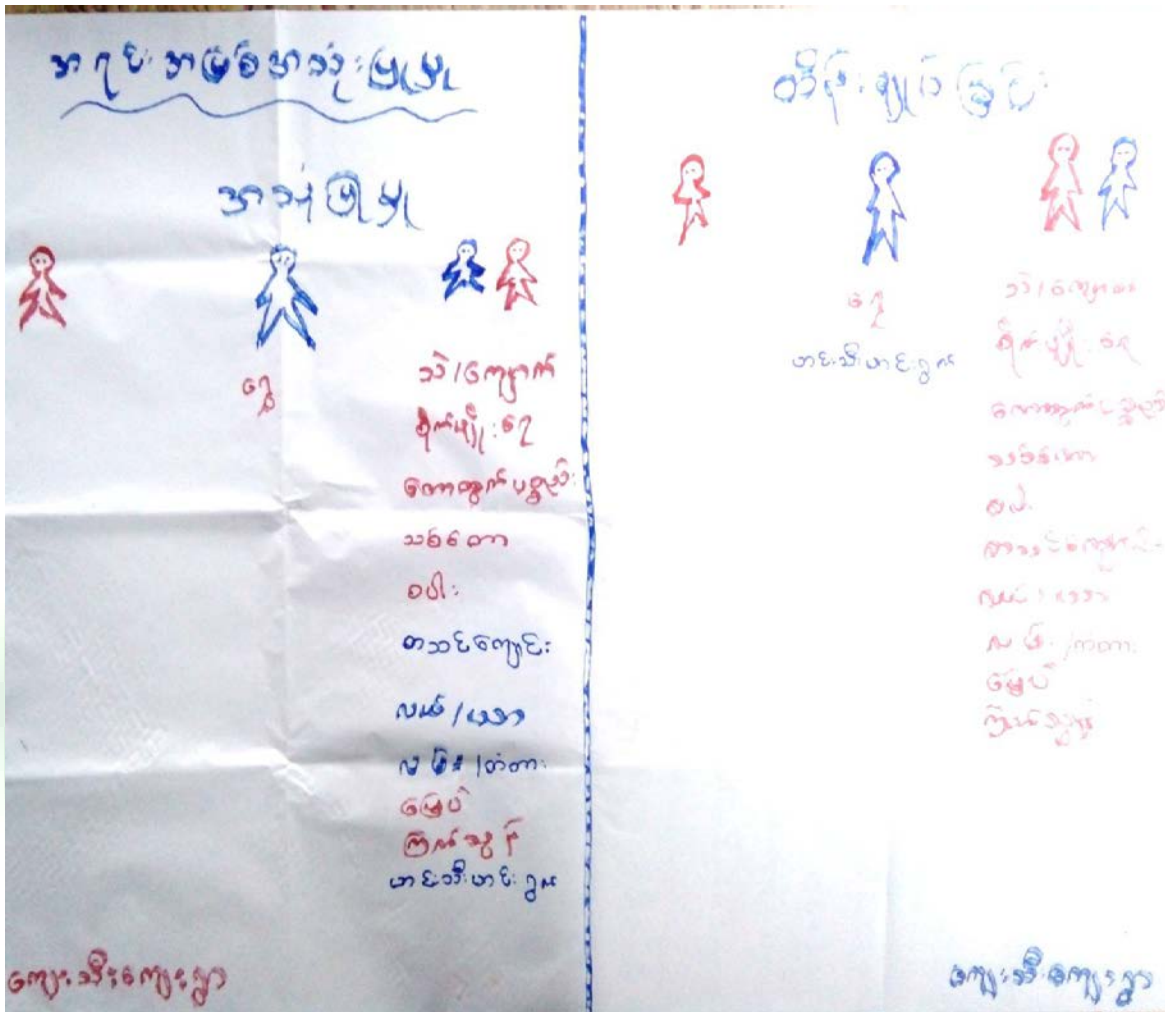 အရင်းအမြစ်အသုံးပြုမှု
အသုံးပြုမှု
ရွှေ
သဲ/ကျောက်
စိုက်ပျိုးရေ
တောထွက်ပစ္စည်း
သစ်တော
စပါး
စာသင်ကျောင်း
လယ်/ယာ
လမ်း/တံတား
မြေပဲ
ကြက်သွန်
ဟင်းသီးဟင်းရွက်
ကျေးသီးကျေးရွာ
ထိန်းချုပ်ခြင်း
ရွှေ
ဟင်းသီးဟင်းရွက်
သဲ/ကျောက်
စိုက်ပျိုးရေ
တောထွက်ပစ္စည်း
သစ်တော
စပါး
စာသင်ကျောင်း
လယ်/ယာ
လမ်း/တံတား
မြေပဲ
ကြက်သွန်
ကျေးသီးကျေးရွာ